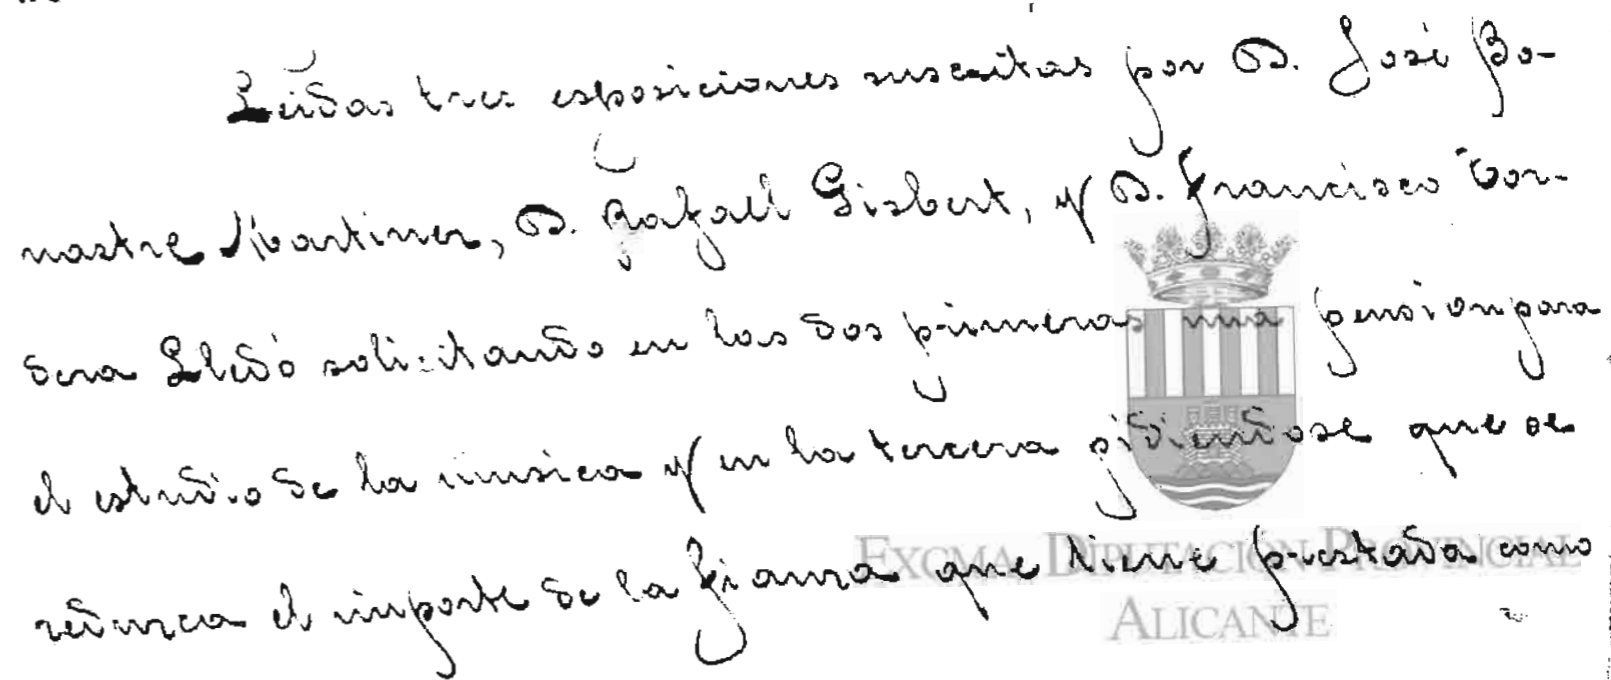 Leidas tres esposiciones suscritas por D. José Bo-
nastre Martinez, D. Rafael Gisbert, y D. Francisco Tor-
dera Lledó solicitando en las dos primeras una pension para
el estudio de la musica y en la tercera pidiendose que se
reduzca el importe de la fianza que tiene prestada como
EXCMA. DIPUTACIÓN PROVINCIAL
ALICANTE